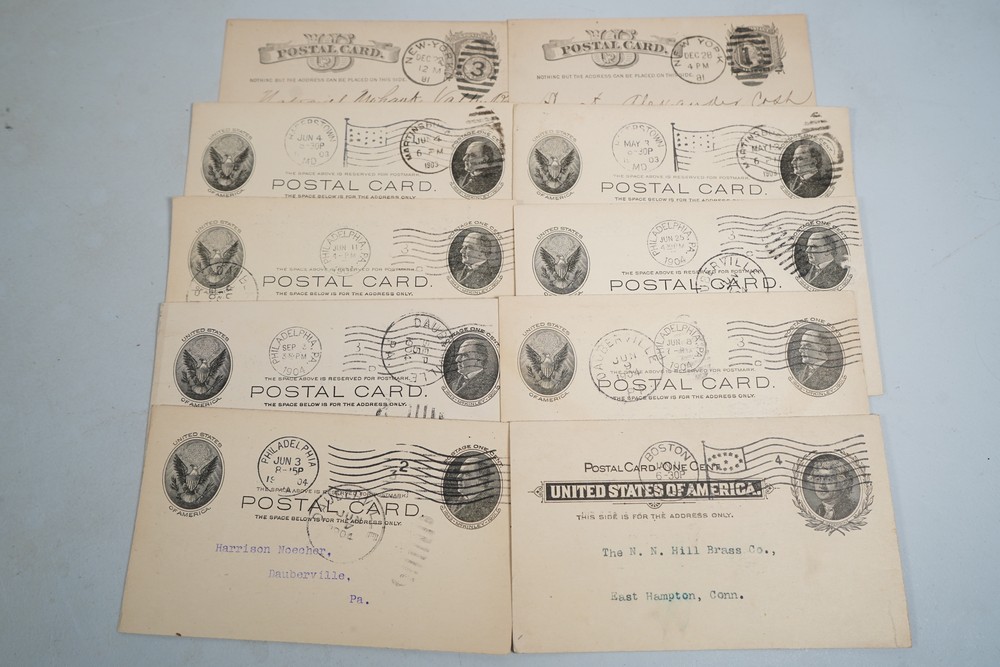 POSTAL CARD.
NOTHING BUT THE ADDRESS CAN BE PLACED ON THIS SIDE.
NEW-YORK
DEC
12 M
81
3
POSTAL CARD.
NOTHING BUT THE ADDRESS CAN BE PLACED ON THIS SIDE.
NEW YORK
DEC 28
4 PM
81
1
Alexander
HAGERSTOWN
JUN 4
MD
JUN 4
6 PM
1903
THE SPACE ABOVE IS RESERVED FOR POSTMARK.
POSTAL CARD.
THE SPACE BELOW IS FOR THE ADDRESS ONLY.
OF AMERICA
MAY
6-30P
03
MD
1903
THE SPACE ABOVE IS RESERVED FOR POSTMARK.
POSTAL CARD.
THE SPACE BELOW IS FOR THE ADDRESS ONLY.
OF AMERICA
UNITED STATES
PHILADELPHIA, PA
JUN 11
3
POSTAGE ONE CENT
THE SPACE ABOVE IS RESERVED FOR POSTMARK
POSTAL CARD.
THE SPACE BELOW IS FOR THE ADDRESS ONLY.
UNITED STATES
OF AMERICA
PHILADELPHIA, PA
JUN 25
1904
3
C
POSTAGE ONE CENT
THE SPACE ABOVE IS RESERVED FOR POSTMARK.
POSTAL CARD.
THE SPACE BELOW IS FOR THE ADDRESS ONLY.
UNITED STATES
OF AMERICA
PHILADELPHIA, PA
SEP
1904
3
D
POSTAGE ONE CENT
THE SPACE ABOVE IS RESERVED FOR POSTMARK.
POSTAL CARD.
THE SPACE BELOW IS FOR THE ADDRESS ONLY.
UNITED STATES
OF AMERICA
DAUBERVILLE
JUN
9
PHILADELPHIA, PA
JUN 8
3
C
POSTAGE ONE CENT
POSTAL CARD.
THE SPACE BELOW IS FOR THE ADDRESS ONLY.
UNITED STATES
OF AMERICA
PHILADELPHIA
JUN 3
2
POSTAGE ONE CENT
THE SPACE ABOVE IS RESERVED FOR POSTMARK.
POSTAL CARD.
THE SPACE BELOW IS FOR THE ADDRESS ONLY.
JUN
1904
Harrison Noecher,
Dauberville,
Pa.
BOSTON
6-30P
4
POSTAL CARD-ONE CENT.
UNITED STATES OF AMERICA.
THIS SIDE IS FOR THE ADDRESS ONLY.
The N. N. Hill Brass Co.,
East Hampton, Conn.